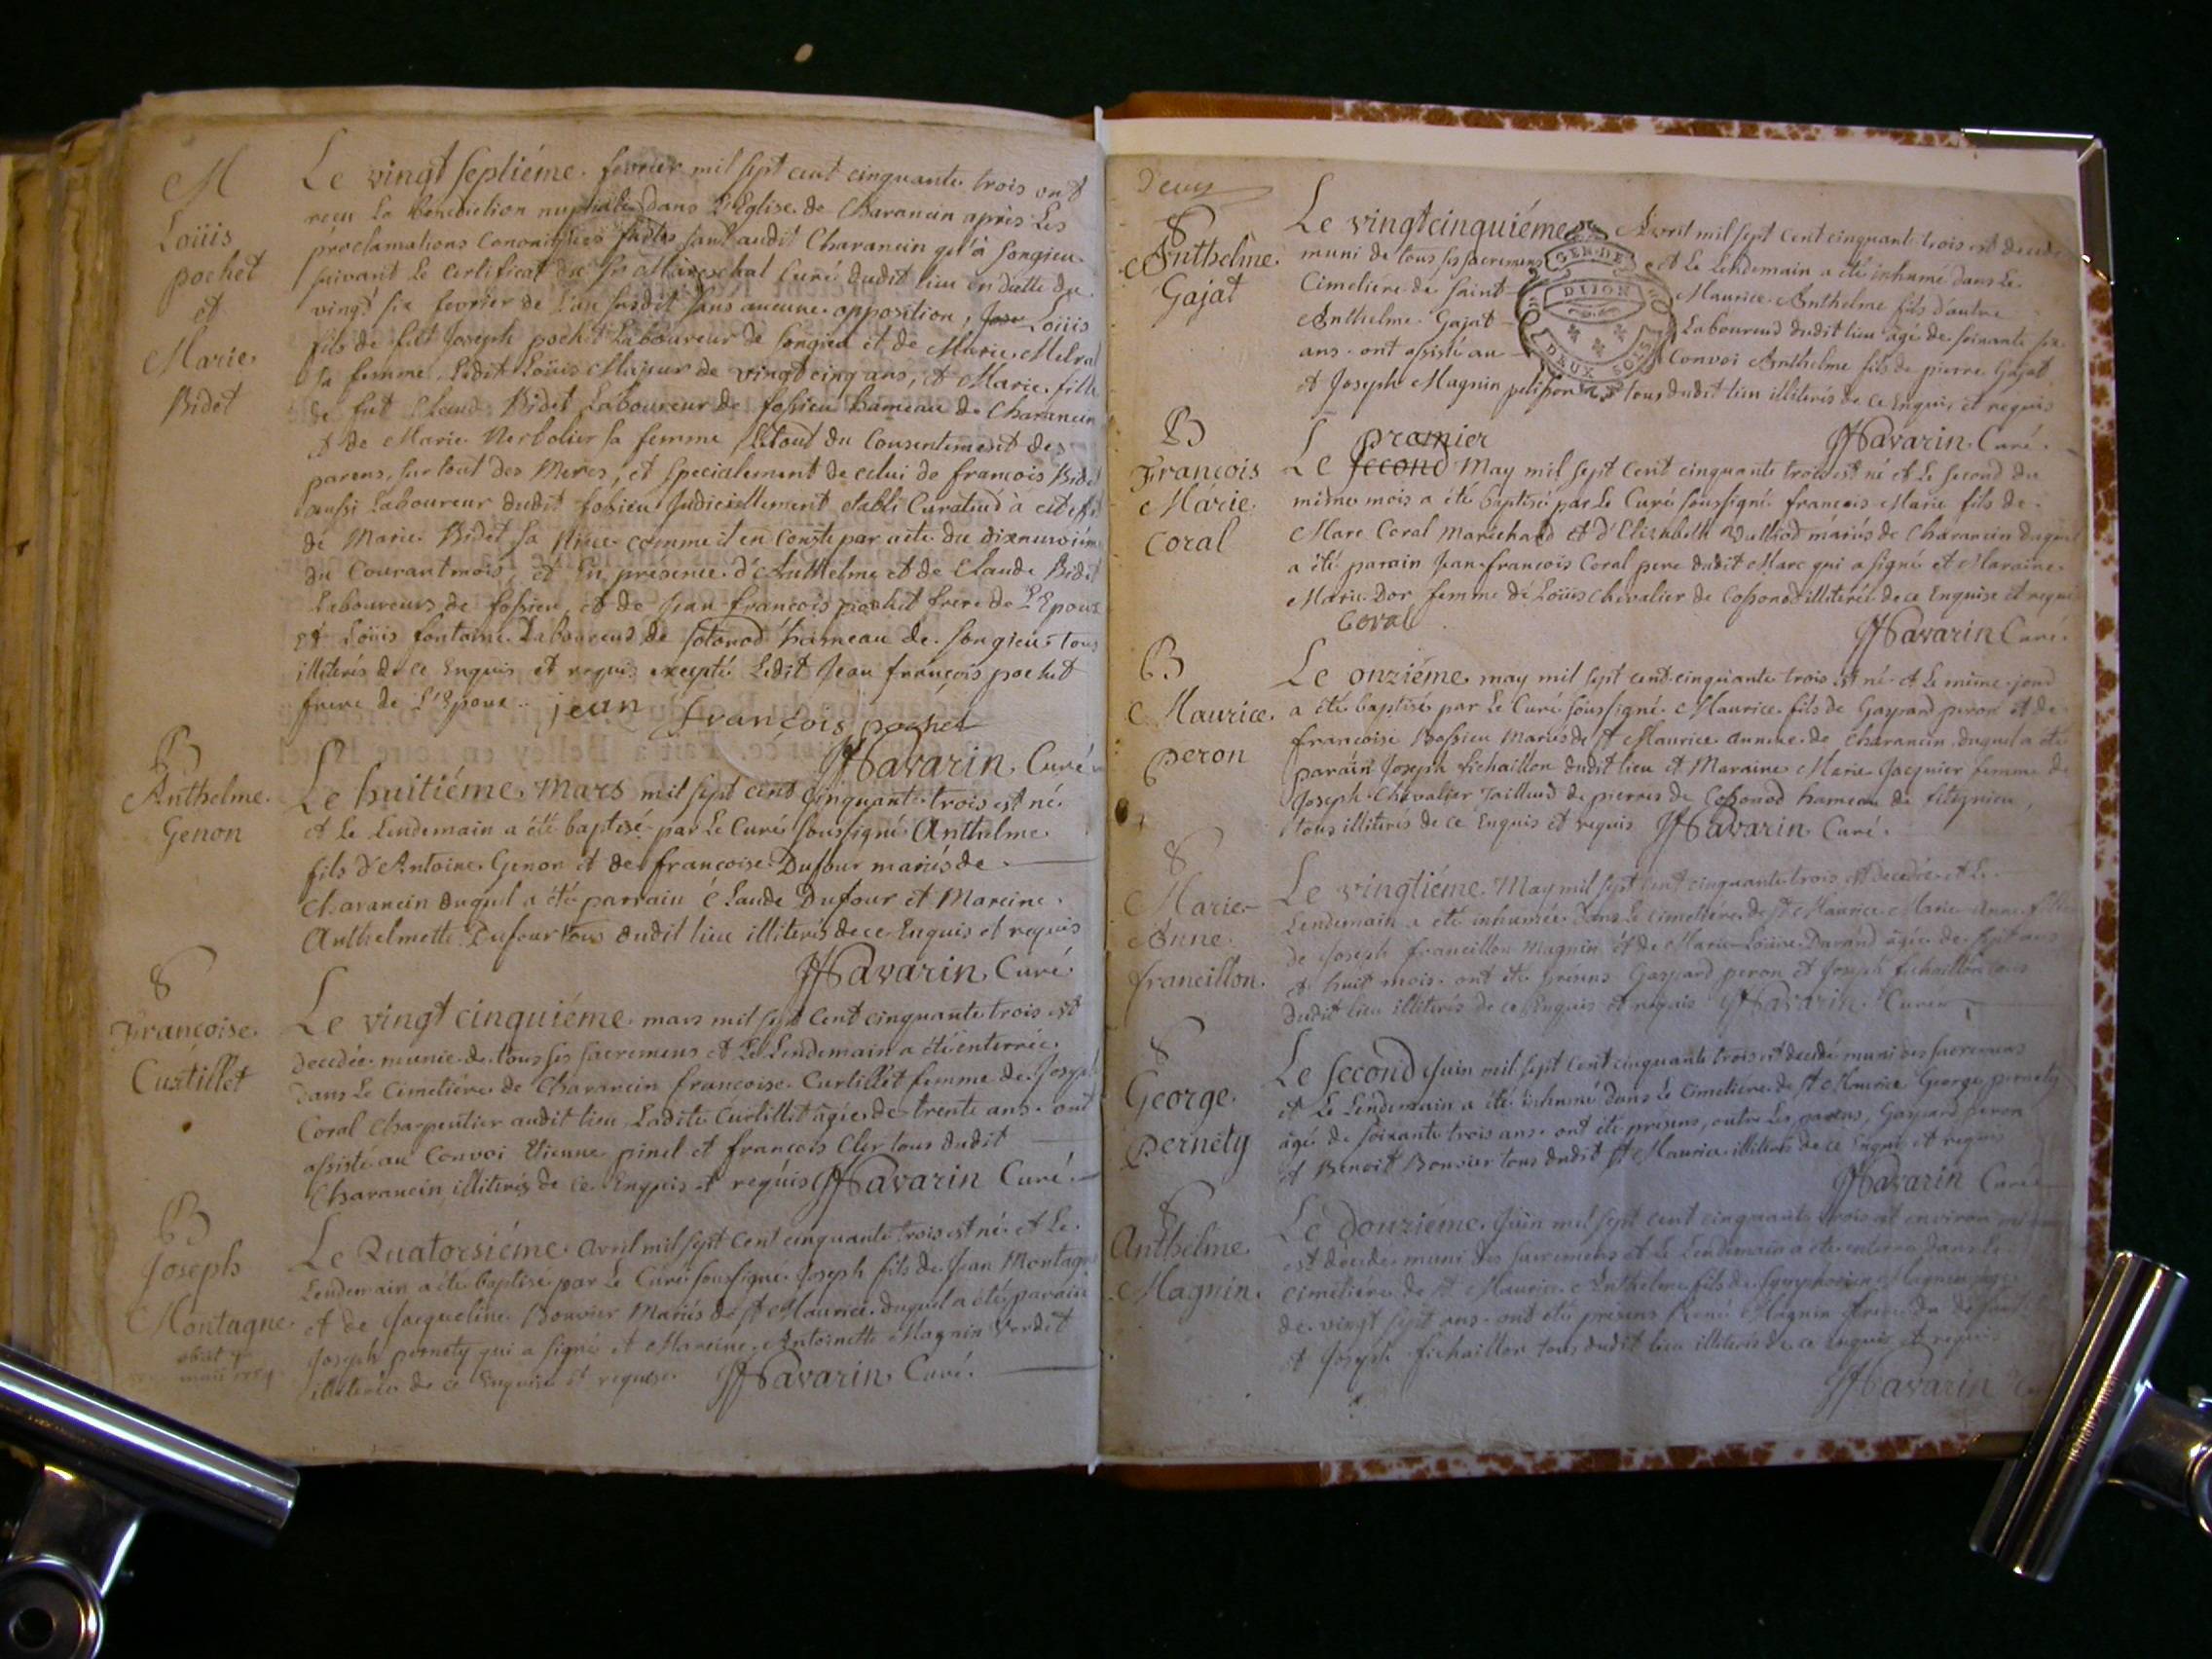 M
Loüis
pochet
et
Marie
Bidet
Le vingt septiéme fevrier mil sept cent cinquante trois ont
reçu la benediction nuptiale dans l'Eglise de Charancin après les
proclamations faites tant audit Charancin qu'à Songieu
suivant le certificat du Sr Mareschal Curé dudit lieu en datte du
vingt six fevrier de l'an susdit sans aucune opposition, Loüis
fils de fut Joseph pochet Laboureur de Songieu et de Marie
sa femme, Ledit Loüis Majeur de vingt cinq ans, et Marie fille
de fut Claude Bidet Laboureur de fossieu hameau de Charancin
et de Marie sa femme Le tout du Consentement des
parens, sur tout des Meres, et specialement de celui de françois Bidet
aussi Laboureur dudit fossieu Judiciellement etabli Curateur à cet effet
de Marie Bidet sa Niece comme il en Conste par acte du dixneuviéme
du Courant mois, et En presence d'Anthelme et de Claude Bidet
Laboureurs de fossieu, et de Jean françois pochet frere de L'Epoux
et Loüis fontaine Laboureur de Sotonod hameau de Songieu tous
illiterés de ce Enquis et requis excepté Ledit Jean françois pochet
frere de L'Epoux. jean françois pochet
Havarin Curé
B
Anthelme
Genon
Le huitiéme Mars mil sept cent Cinquante trois est né
et le Lendemain a été baptisé par Le Curé soussigné Anthelme
fils d'Antoine Genon et de françoise Dufour mariés de
Charancin duquel a été parrain Claude Dufour et Mareine
Anthelmette Dufour tous dudit lieu illiterés de ce Enquis et requis
Havarin Curé
S
Françoise
Curtillet
Le vingt cinquiéme mars mil sept Cent cinquante trois est
decedée munie de tous ses sacremens et Le Lendemain a été enterrée
dans Le Cimetiére de Charancin françoise Curtillet femme de Joseph
Coral Charpentier audit lieu Ladite Curtillet agée de trente ans. ont
assisté au Convoi Etienne pinel et françois Cler tous dudit
Charancin illiterés de ce Enquis et requis Havarin Curé
B
Joseph
Montagne
obiit
Le Quatorsiéme Avril mil sept Cent cinquante trois est né et Le
Lendemain a été baptisé par Le Curé soussigné Joseph fils de Jean Montagne
et de Jacqueline Bouvier Mariés de St Maurice duquel a été parain
Joseph pernety qui a signé et Mareine Antoinette Magnin
illiterée de ce Enquise et requise Havarin Curé
Deux
S
Anthelme
Gajat
Le vingtcinquiéme Avril mil sept cent cinquante trois est decedé
muni de tous ses sacremens et Le Lendemain a été inhumé dans Le
Cimetiére de Saint Maurice Anthelme fils d'autre
Anthelme Gajat Laboureur dudit lieu agé de soixante six
ans. ont assisté au Convoi Anthelme fils de pierre Gajat
et Joseph Magnin tous dudit lieu illiterés de ce Enquis et requis
Havarin Curé
GEN. DE
DIJON
DEUX SOLS
B
François
Marie
Coral
premier
Le second May mil sept Cent cinquante trois est né et Le second du
même mois a été baptisé par Le Curé soussigné françois Marie fils de
Marc Coral Marechal et d'Elizabeth mariés de Charancin duquel
a été parain Jean françois Coral pere dudit Marc qui a signé et Maraine
Marie Dor femme de Loüis Chevalier de Cossonod illiterée de ce Enquise et requise
Coral
Havarin Curé
B
Maurice
peron
Le onziéme may mil sept cent cinquante trois est né et Le même jour
a été baptisé par Le Curé soussigné Maurice fils de Gaspard peron et de
françoise Bossieu Mariés de St Maurice annexe de Charancin duquel a été
parain Joseph fichaillon dudit lieu et Maraine Marie Jacquier femme de
Joseph Chevalier Tailleur de pierres de Cossonod hameau de fitignieu,
tous illiterés de ce Enquis et requis Havarin Curé
S
Marie
Anne
francillon
Le vingtiéme May mil sept cent cinquante trois est decedée et Le
Lendemain a été inhumée dans Le cimetiére de St Maurice Marie Anne fille
de Joseph francillon Magnin et de Marie Loüise Durand agée de sept ans
et huit mois. ont été presens Gaspard peron et Joseph fichaillon tous
dudit lieu illiterés de ce Enquis et requis Havarin Curé
S
George
pernety
Le second Juin mil sept cent cinquante trois est decedé muni des sacremens
et Le Lendemain a été inhumé dans Le Cimetiere de St Maurice George pernety
agé de soixante trois ans. ont été presens, outre Les parens, Gaspard peron
et Benoit Bouvier tous dudit St Maurice illiterés de ce Enquis et requis
Havarin Curé
S
Anthelme
Magnin
Le douziéme Juin mil sept cent cinquante trois et environ
est decedé muni des sacremens et Le Lendemain a été enterré dans Le
Cimetiére de St Maurice Anthelme fils de Symphorien Magnin agé
de vingt sept ans. ont été presens René Magnin frere du defunt
et Joseph fichaillon tous dudit lieu illiterés de ce Enquis et requis
Havarin